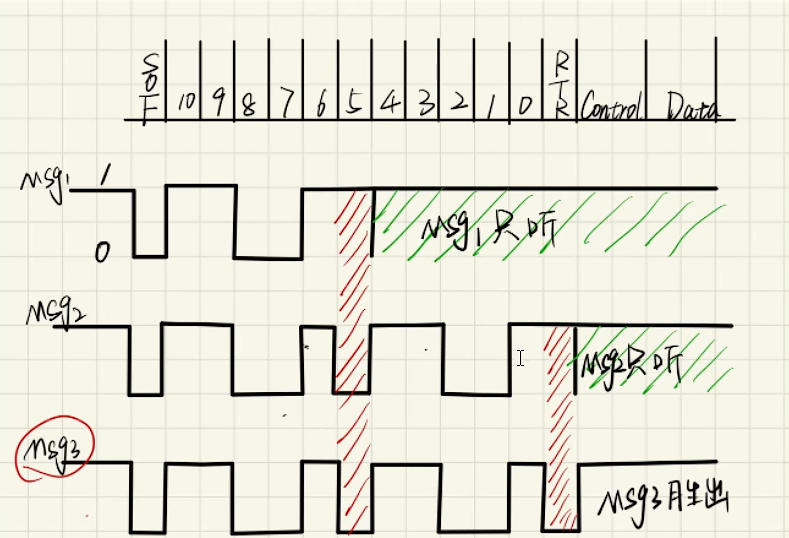 SOF 10 9 8 7 6 5 4 3 2 1 0 RTR Control Data
Msg1 1
0
Msg1只听
Msg2
Msg2只听
Msg3
Msg3胜出